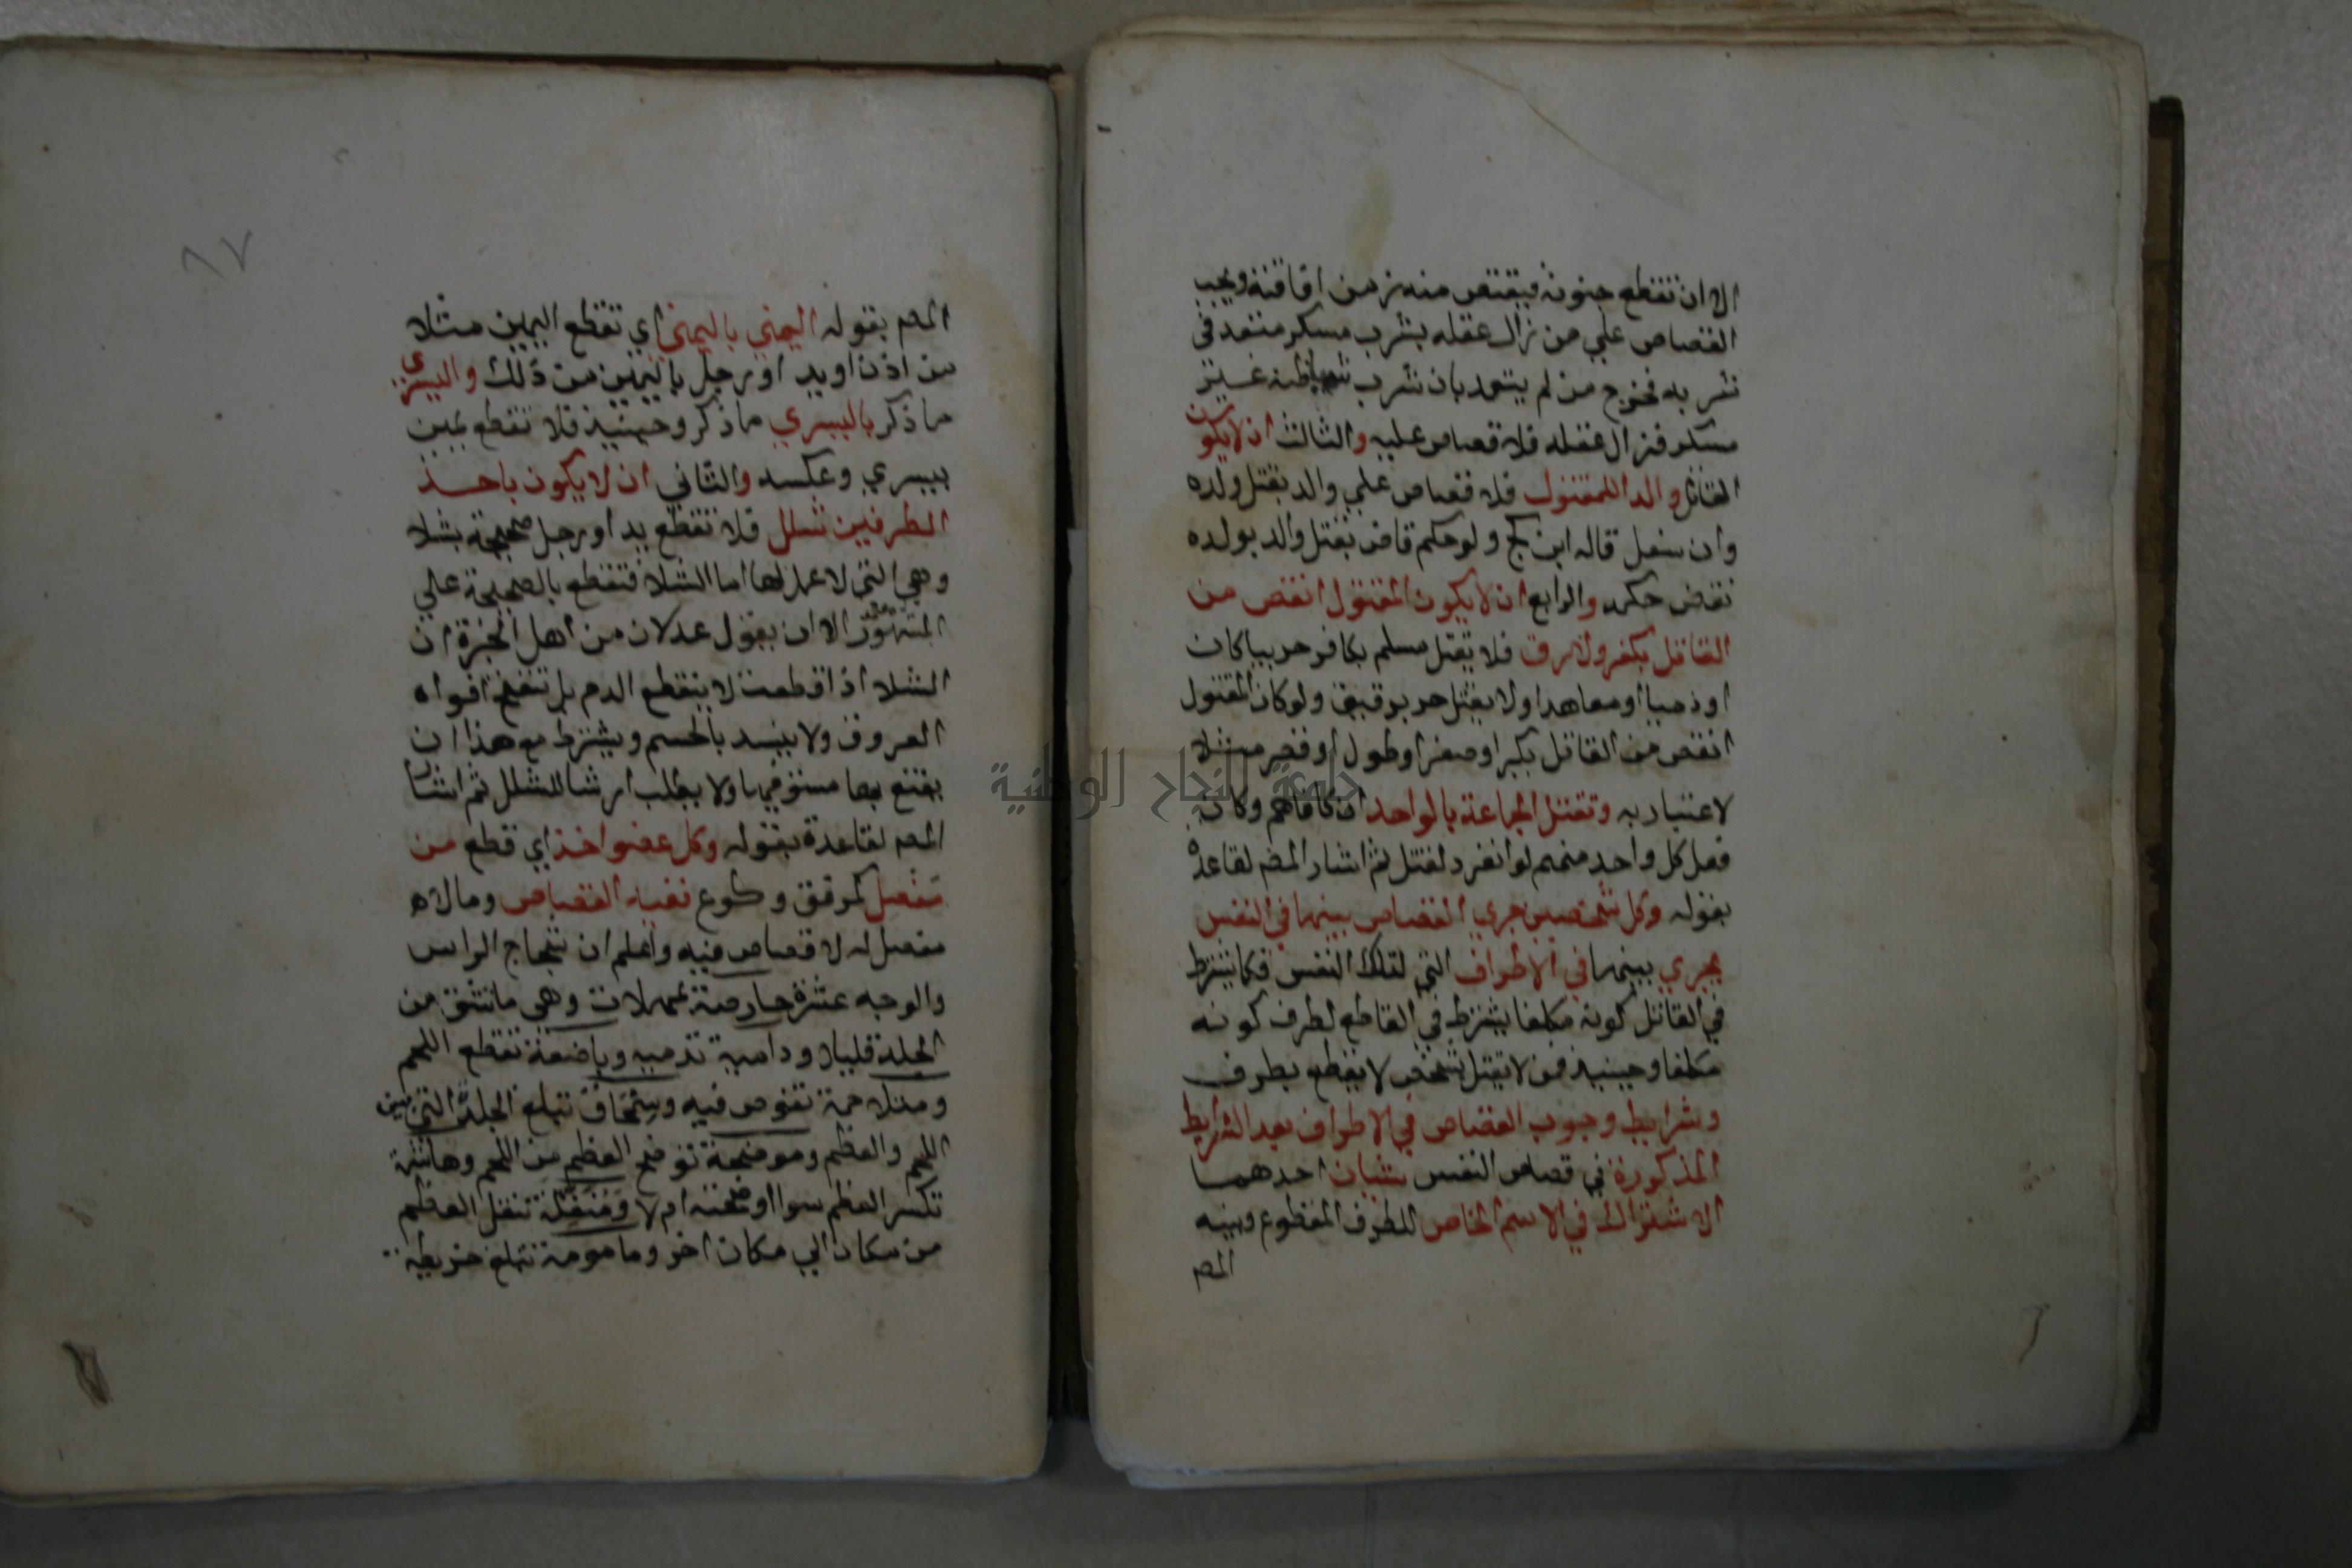 الا ان تقطع جنونه فيقتص منه زمن افاقته ويجب
القصاص علي من زال عقله بشرب مسكر متعد في
شربه فخرج من لم يتعد بان شرب شيا ظنه غير
مسكر فزال عقله فلا قصاص عليه والثالث ان لا يكون
القاتل والدا للمقتول فلا قصاص علي والد بقتل ولده
وان سفل قاله ابن كج ولو حكم قاض بقتل والد بولده
نقض حكمه والرابع ان لا يكون المقتول انقص من
القاتل بكفر ولا رق فلا يقتل مسلم بكافر حربيا كان
او ذميا او معاهدا ولا يقتل حر برقيق ولو كان المقتول
انقص من القاتل بكبر او صغر او طول او قصر مثلا
لا عتبار به وتقتل الجماعة بالواحد ان كافاهم وكان
فعل كل واحد منهم لو انفرد لقتل ثم اشار المص لقاعدة
بقوله وكل شخصين جري القصاص بينهما في النفس
يجري بينهما في الاطراف التي لتلك النفس فكما يشترط
في القاتل كونه مكلفا يشترط في القاطع لطرف كونه
مكلفا وحينيذ فمن لا يقتل بشخص لا يقطع بطرفه
وشرايط وجوب القصاص في الاطراف بعد الشرايط
المذكورة في قصاص النفس شيان احدهما
الاشتراك في الاسم الخاص للطرف المقطوع وبينه
المص
٨٧
المص بقوله اليمني باليمني اي تقطع اليمين مثلا
من اذن او يد او رجل باليمين من ذلك واليسري
مما ذكر باليسري مما ذكر وحينيذ فلا تقطع يمين
بيسري وعكسه والثاني ان لا يكون باحد
الطرفين شلل فلا تقطع يد او رجل صحيحة بشلا
وهي التي لا عمل لها اما الشلا فتقطع بالصحيحة علي
المشهور الا ان يقول عدلان من اهل الخبرة ان
الشلا اذا قطعت لا ينقطع الدم بل تنفتح افواه
العروق ولا ينسد بالحسم ويشترط مع هذا ان
يقنع بها مستوفيها ولا يطلب ارشا للشلل ثم اشار
المص لقاعدة بقوله وكل عضو اخذ اي قطع من
مفصل كمرفق وكوع ففيه القصاص وما لا
مفصل له لا قصاص فيه واعلم ان شجاج الراس
والوجه عشرة حارصة بمهملات وهي ما تشق من
الجلد قليلا ودامية تدميه وباضعة تقطع اللحم
ومتلاحمة تغوص فيه وسمحاق تبلغ الجلدة التي بين
اللحم والعظم وموضحة توضح العظم من اللحم وهاشمة
تكسر العظم سوا اوضحته ام لا ومنقلة تنقل العظم
من مكان الي مكان اخر ومامومة تبلغ خريطة
جامعة النجاح الوطنية